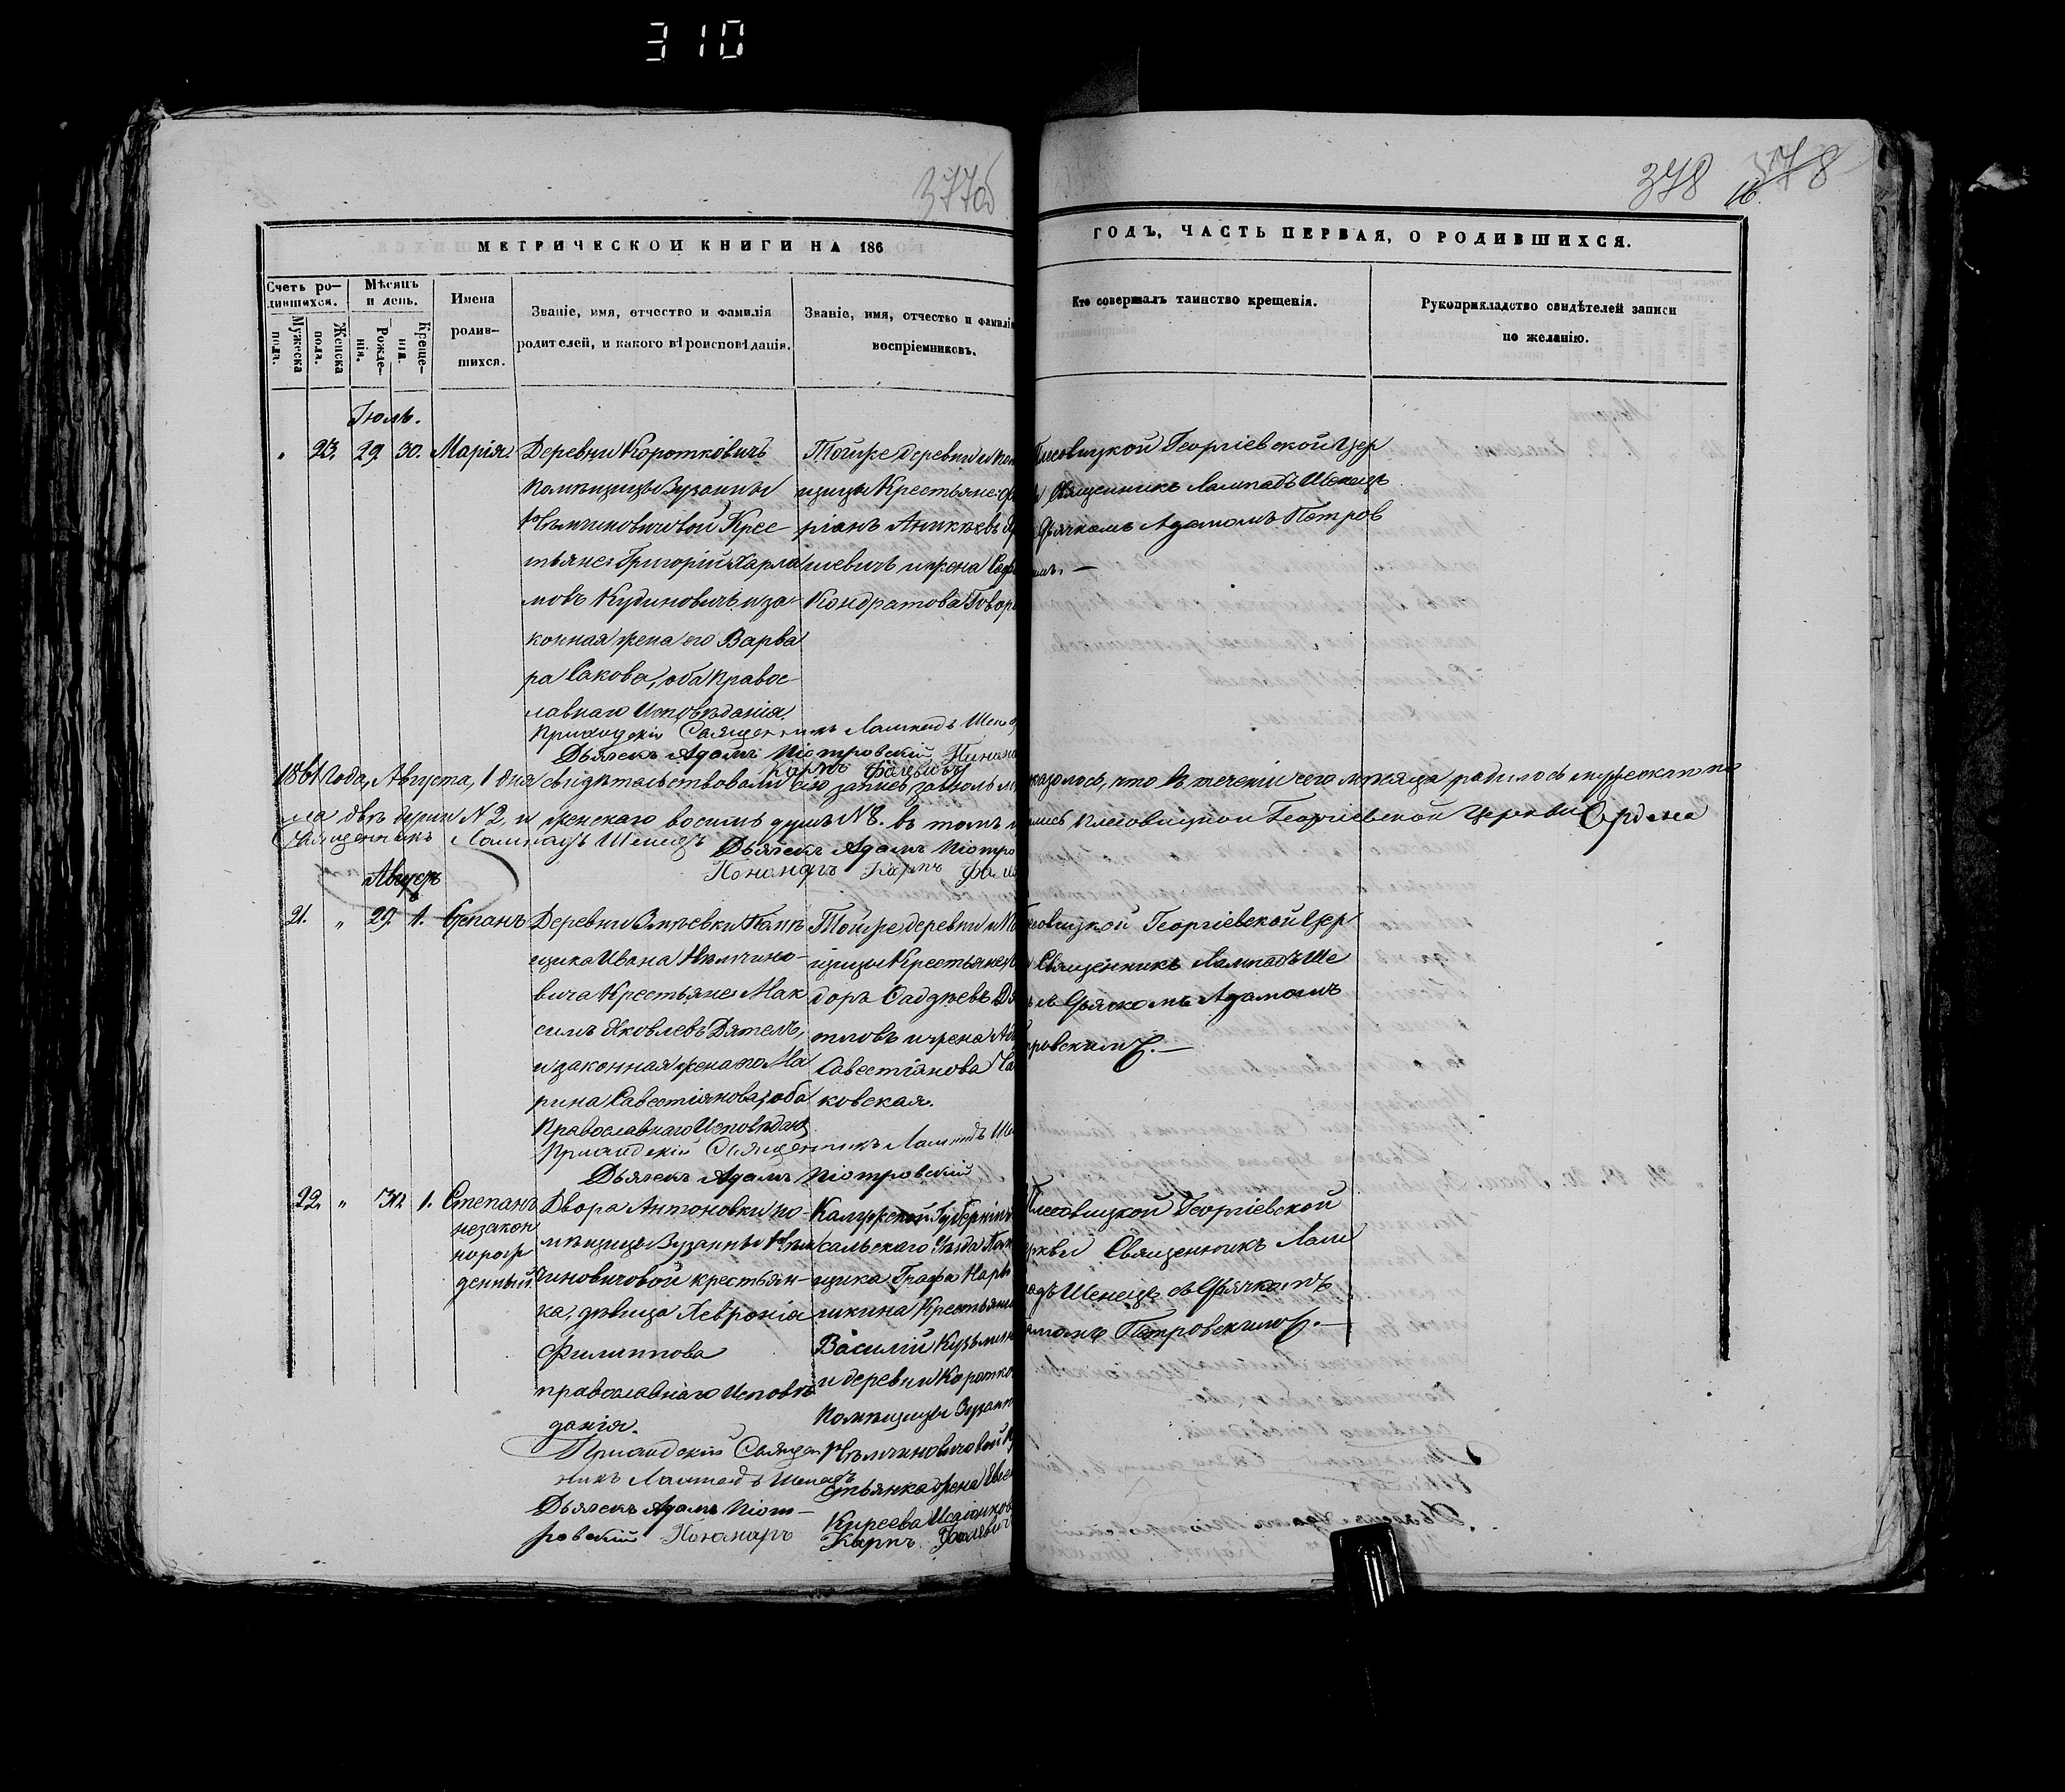 310
377об
378 378
16.
МЕТРИЧЕСКОЙ КНИГИ НА 186
ГОДЪ, ЧАСТЬ ПЕРВАЯ, О РОДИВШИХСЯ.
Счетъ ро-
дившихся.
Мужеска
пола.
Женска
пола.
Мѣсяцъ
и день.
Рожде-
нія.
Креще-
нія.
Имена
родив-
шихся.
Званіе, имя, отчество и фамилія
родителей, и какого вѣроисповѣданія.
Званіе, имя, отчество и фамилія
воспріемниковъ.
Кто совершалъ таинство крещенія.
Рукоприкладство свидѣтелей записи
по желанію.
Іюль.
" 23. 29. 30. Марія.
Деревни Коротковичъ
помѣщицы Зузанны
Нѣмчиновичовой Крес-
тьяне: Григорій Харла
мовъ Кудиновичъ и за-
конная жена его Варва
ра Сакова, оба правос
лавнаго Исповѣданія.
Тойже деревни и пом
щицы Крестьяне:
ріанъ Аникѣевъ
шевичъ и жена
Кондратова Говор
совицкой Георгіевской Цер
Священникъ Лампадъ Шенецъ
Дьячкомъ Адамомъ Петров
имъ. —
Приходскій Священникъ Лампадъ
Дьячекъ Адамъ Піотровскій
Карпъ
1861 Года, Августа, 1 дня свидѣтельствовали сію запись,
казалось, что въ теченіи сего мѣсяца родилось мужескаго по
ла двѣ души № 2, и женскаго восемь душъ № 8. въ томъ
Георгіевской Церкви
Священникъ Лампадъ Шенецъ
Дьячекъ Адамъ Піотро
Пономарь Карпъ
Августъ
21. " 29. 1. Степанъ
Деревни Змѣевки Помѣ
щика Ивана Нѣмчино-
вича Крестьяне: Мак
симъ Яковлевъ Дятелъ,
и законная жена его Ма
рина Савестіянова, оба
Православнаго Исповѣдан
Тойже деревни и По
щицы Крестьяне:
доръ Садѣевъ Дя
тловъ и жена
Савестіянова
ковская.
совицкой Георгіевской Цер
Священникъ Лампадъ Ше
Дьячкомъ Адамомъ
ровскимъ. —
Приходскій Священникъ Лампадъ Ше
Дьячекъ Адамъ Піотровскій
22. " 31. 1. Степанъ
незакон
норож
денный.
Двора Антоновки по-
мѣщицы Зузанны Нѣм
чиновичовой крестьян-
ка, дѣвица Хевронія
Филиппова
православнаго Исповѣ
данія.
Калужской Губерніи
сальскаго Уѣзда Помѣ
щика Графа Нары
шкина Крестьянин
Василій Кузьмин
и деревни Коротко
помѣщицы Зузанн
Нѣмчиновичовой К
стьянка жена Евге
Киреева
совицкой Георгіевской
ркви Священникъ Лам
адъ Шенецъ съ Дьячкомъ
амомъ Петровскимъ. —
Приходскій Священ
никъ Лампадъ Шенецъ
Дьячекъ Адамъ Піот-
ровскій Пономарь Карпъ